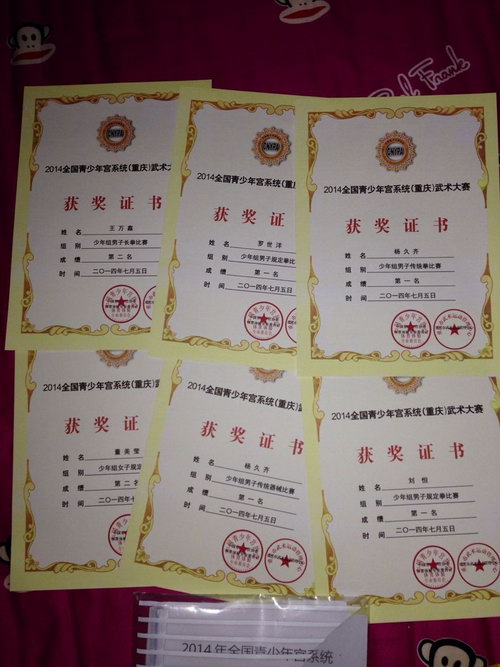 Paul Frank
CNYPA
2014全国青少年宫系统(重庆)武术大
获奖证书
姓名 王万鑫
组别 少年组男子长拳比赛
成绩 第二名
时间 二〇一四年七月五日
CNYPA
2014全国青少年宫系统(重庆)武
获奖证
姓名 罗世洋
组别 少年组男子规定拳比
成绩 第一名
时间 二〇一四年七月五日
2014全国青少年宫系统(重庆)武术大赛
获奖证书
姓名 杨久齐
组别 少年组男子传统拳比赛
成绩 第一名
时间 二〇一四年七月五日
2014全国青少年宫系统(重庆)武
获奖证
姓名 董美莹
组别 少年组女子规定
成绩 第二名
时间 二〇一四年七月五
2014全国青少年宫系统(重庆)武术大
获奖证书
姓名 杨久齐
组别 少年组男子传统器械比赛
成绩 第一名
时间 二〇一四年七月五日
2014全国青少年宫系统(重庆)武术大赛
获奖证书
姓名 刘恒
组别 少年组男子规定拳比赛
成绩 第一名
时间 二〇一四年七月五日
2014年全国青少年宫系统